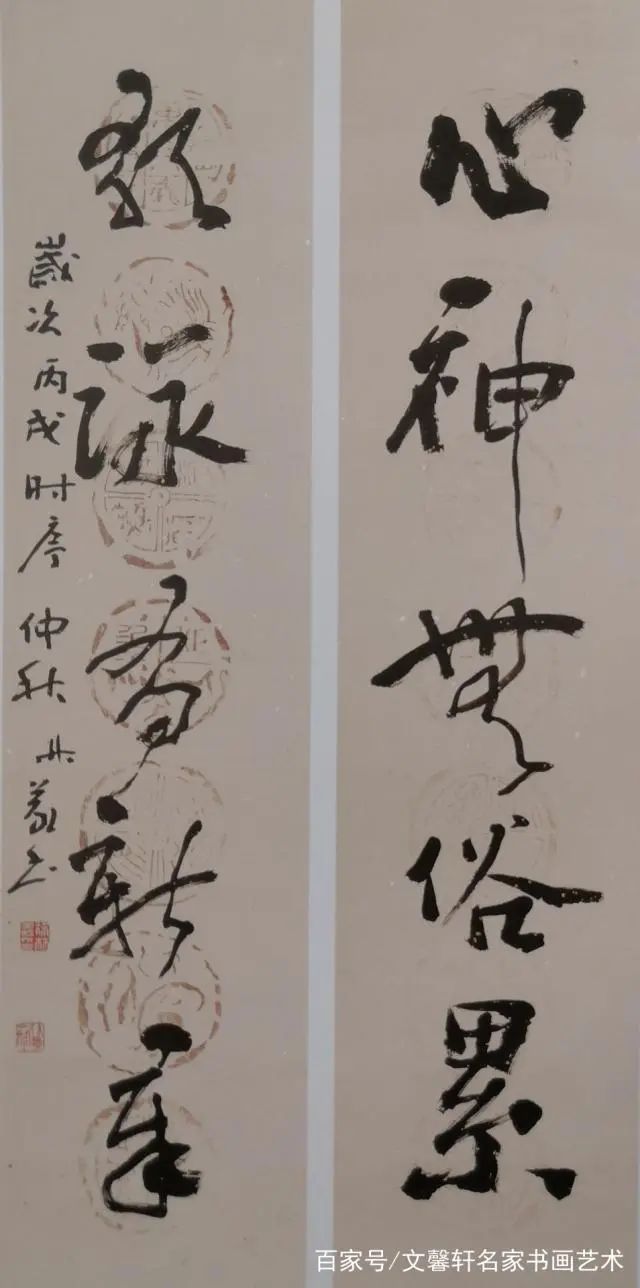 心神无俗累
歌咏有新章
岁次丙戌时序仲秋
百家号/文馨轩名家书画艺术